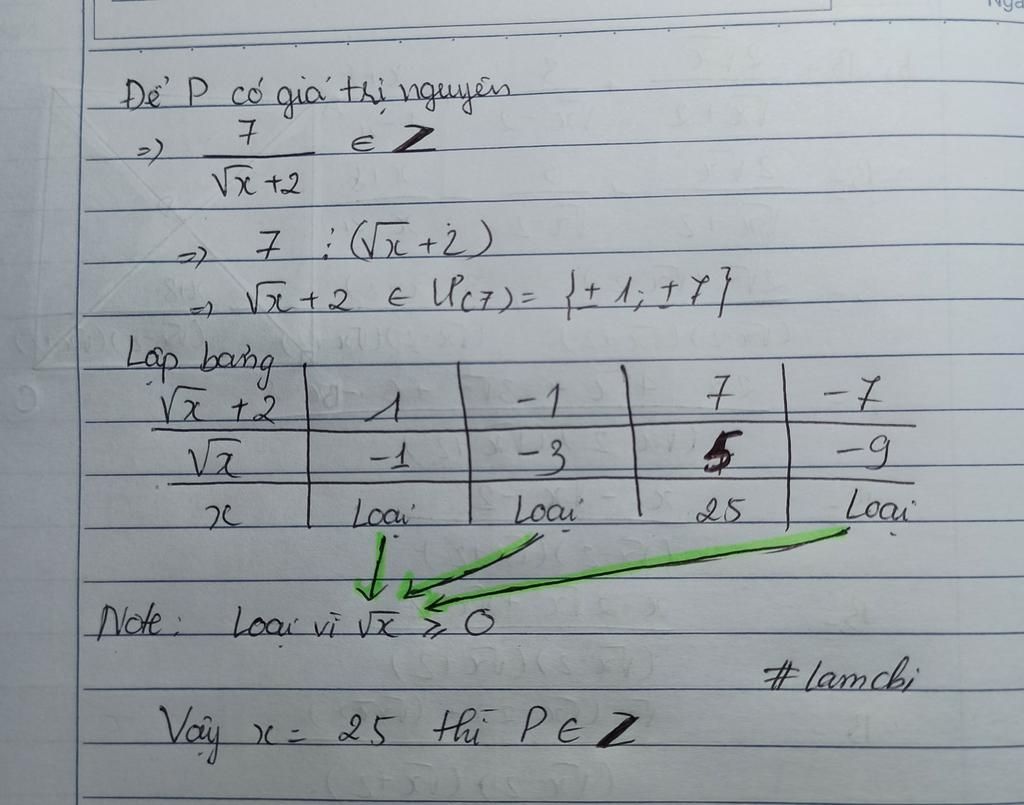 Ngà
Để P có giá trị nguyên
=> 7/(√x +2) ∈ Z
=> 7 ⋮ (√x + 2)
=> √x + 2 ∈ Ư(7) = {± 1; ± 7}
Lập bảng
√x + 2 | 1 | -1 | 7 | -7
√x | -1 | -3 | 5 | -9
x | Loại | Loại | 25 | Loại
Note: Loại vì √x ≥ 0
#lamchi
Vậy x = 25 thì P ∈ Z